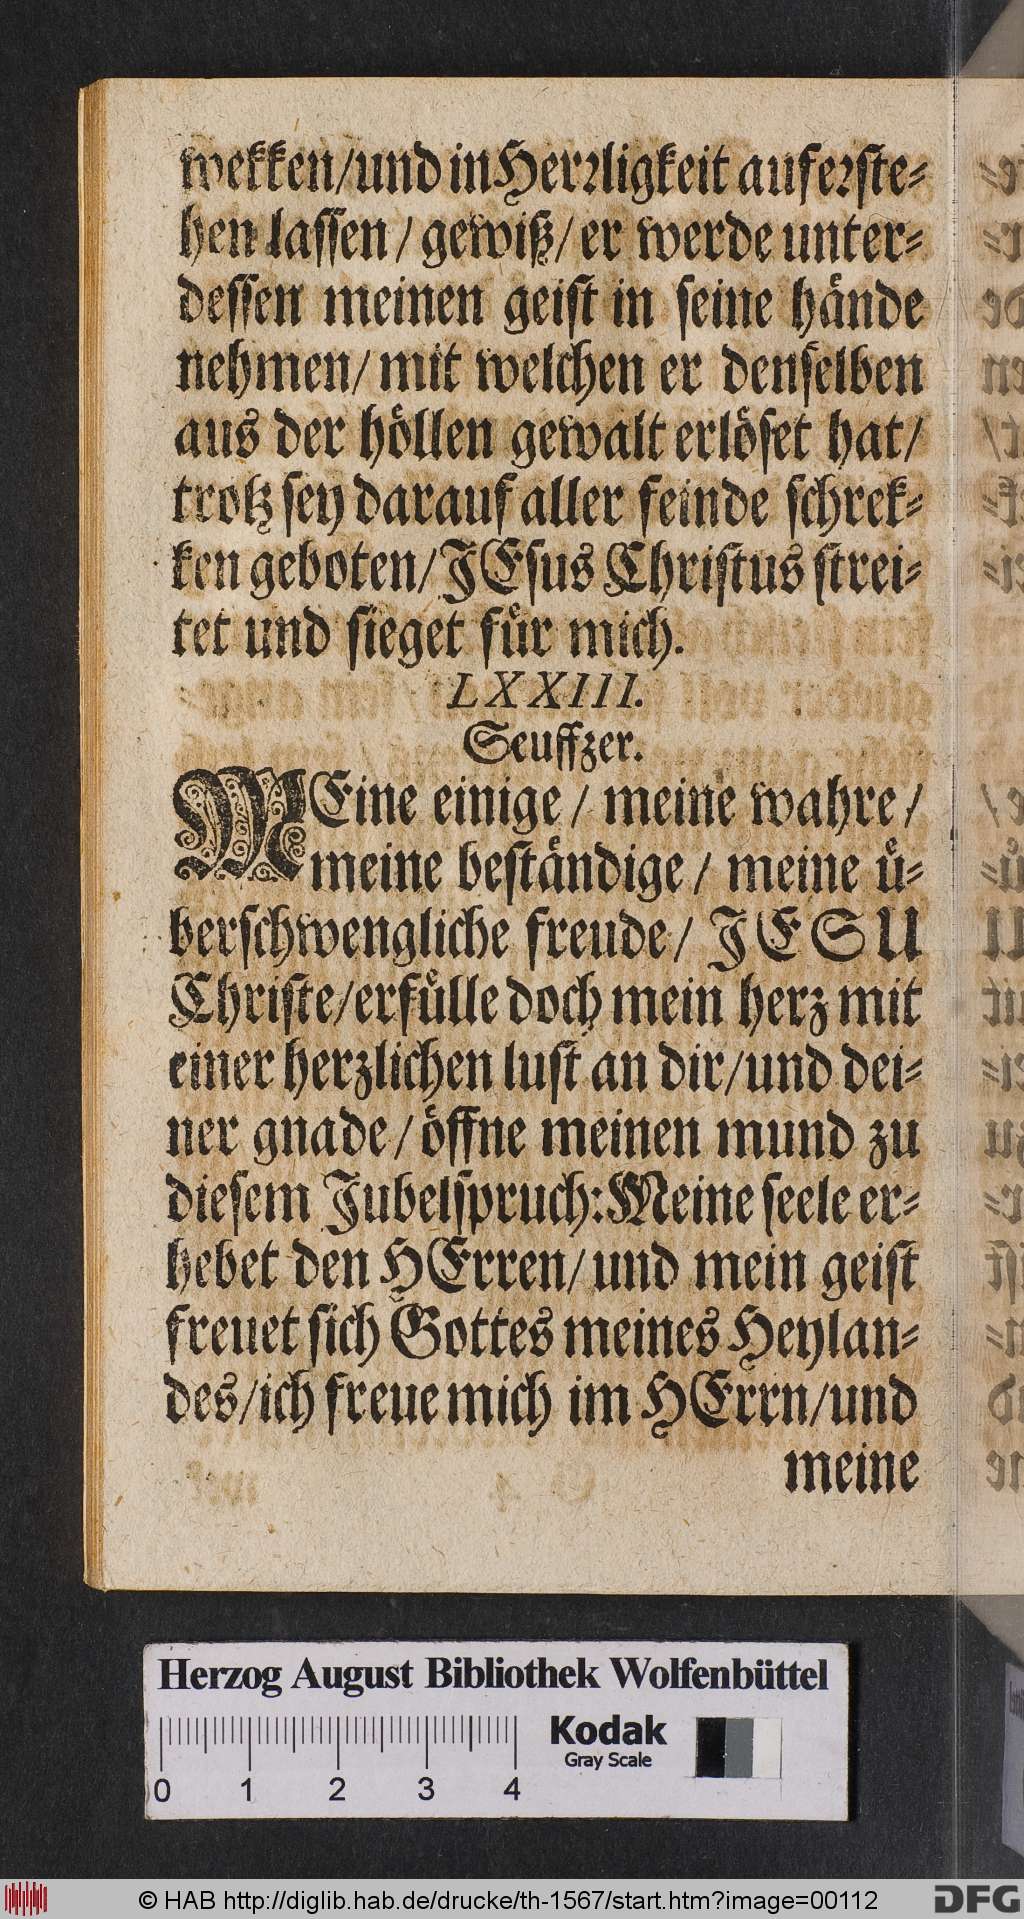 wekken/und in Herrligkeit aufersste-
hen lassen / gewiß/ er werde unter-
dessen meinen geist in seine hände
nehmen/ mit welchen er denselben
aus der höllen gewalt erlöset hat/
trotz sey darauf aller feinde schrek-
ken geboten/JEsus Christus strei-
tet und sieget für mich.
LXXIII.
Seuffzer.
MEine einige / meine wahre /
meine beständige / meine ü-
berschwengliche freude/ JESU
Christe/erfülle doch mein herz mit
einer herzlichen lust an dir/und dei-
ner gnade/öffne meinen mund zu
diesem Jubelspruch: Meine seele er-
hebet den HErren/ und mein geist
freuet sich Gottes meines Heylan-
des/ich freue mich im HErrn/und
meine
Herzog August Bibliothek Wolfenbüttel
Kodak
Gray Scale
0 1 2 3 4
© HAB http://diglib.hab.de/drucke/th-1567/start.htm?image=00112
DFG